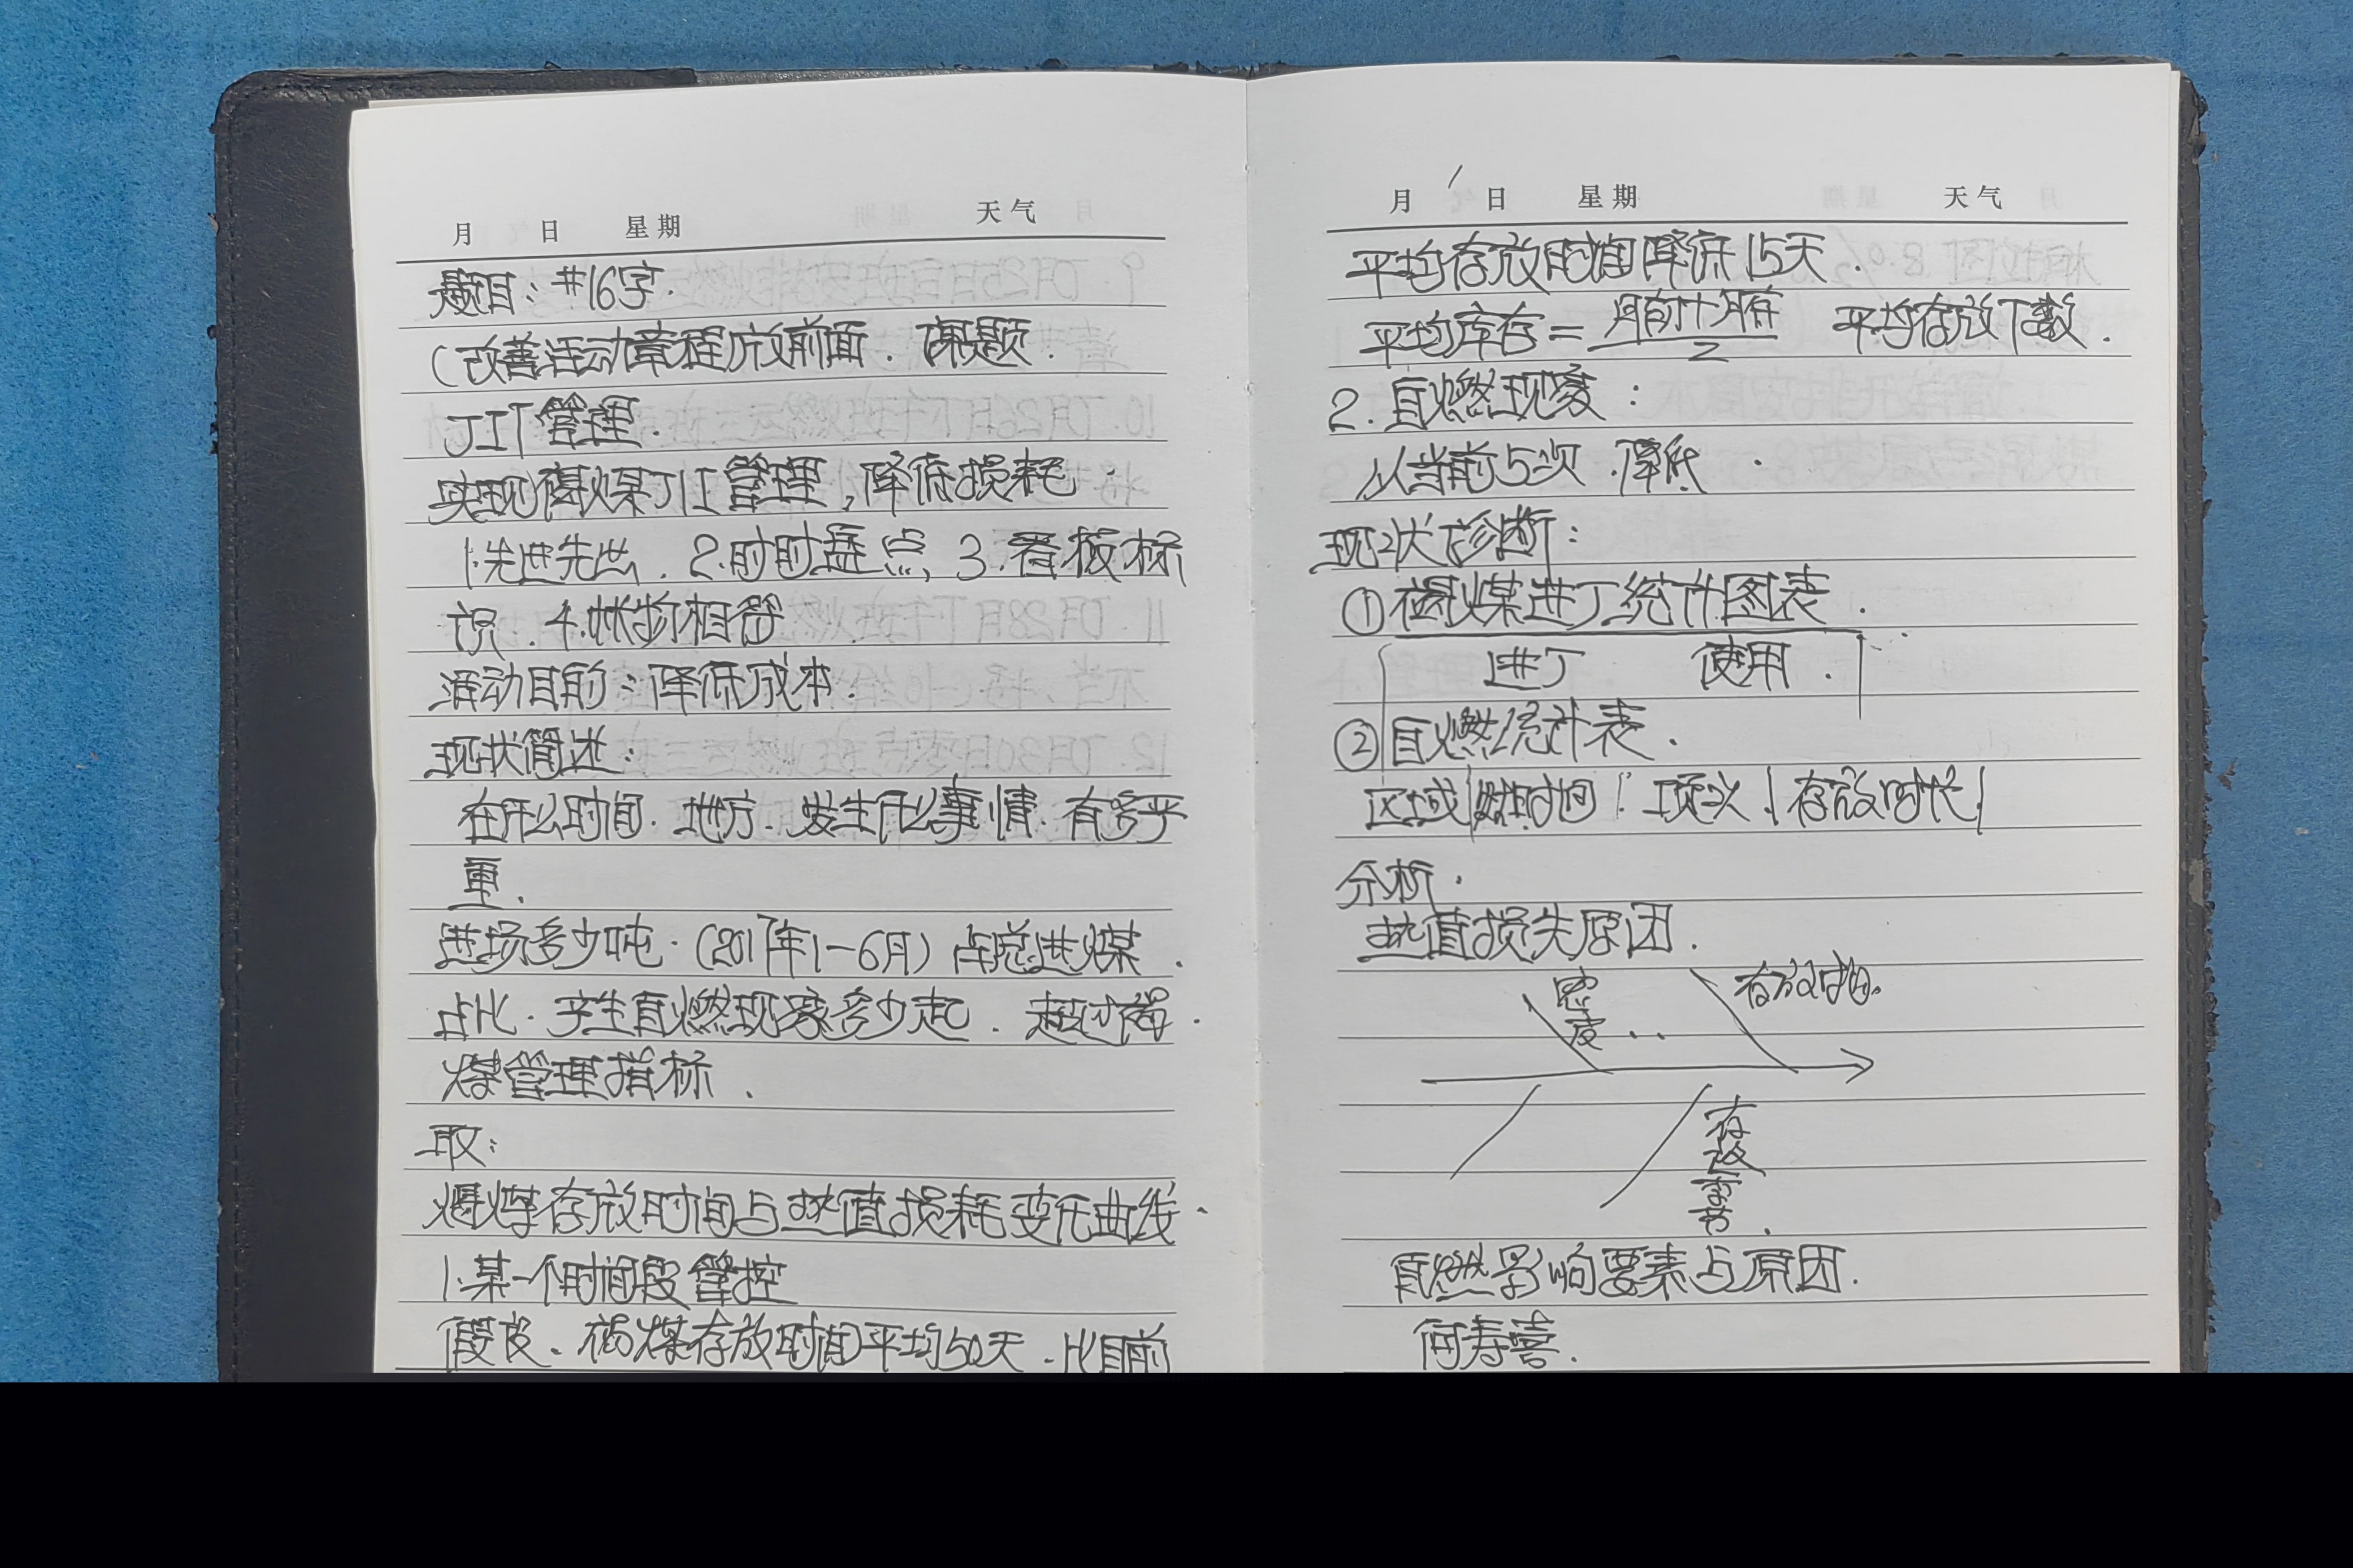 月 日 星期 天气
题目：#16字.
（改善活动章程放前面. 课题.
JIT管理.
实现褐煤JIT管理，降低损耗.
1.先进先出. 2.时时盘点, 3.看板标
识. 4.帐物相符
活动目的：降低成本.
现状简述：
在什么时间. 地方. 发生什么事情. 有多严
重.
进场多少吨.（2017年1-6月）占总进煤.
占比. 产生自燃现象多少起. 超过褐.
煤管理指标.
取：
褐煤存放时间与热值损耗变化曲线.
1.某一个时间段管控
假设. 褐煤存放时间平均50天. 比目前
月 日 星期 天气
平均存放时间降低15天.
平均库存=
2
平均存放下数.
2.自燃现象：
从当前5次. 降低.
现状诊断：
①褐煤进厂统计图表.
进厂 使用.
②自燃统计表.
区域 燃时间 存放时长
分析.
热值损失原因.
密度.. 存放时间.
存放季节.
自燃影响要素与原因.
何寿喜.